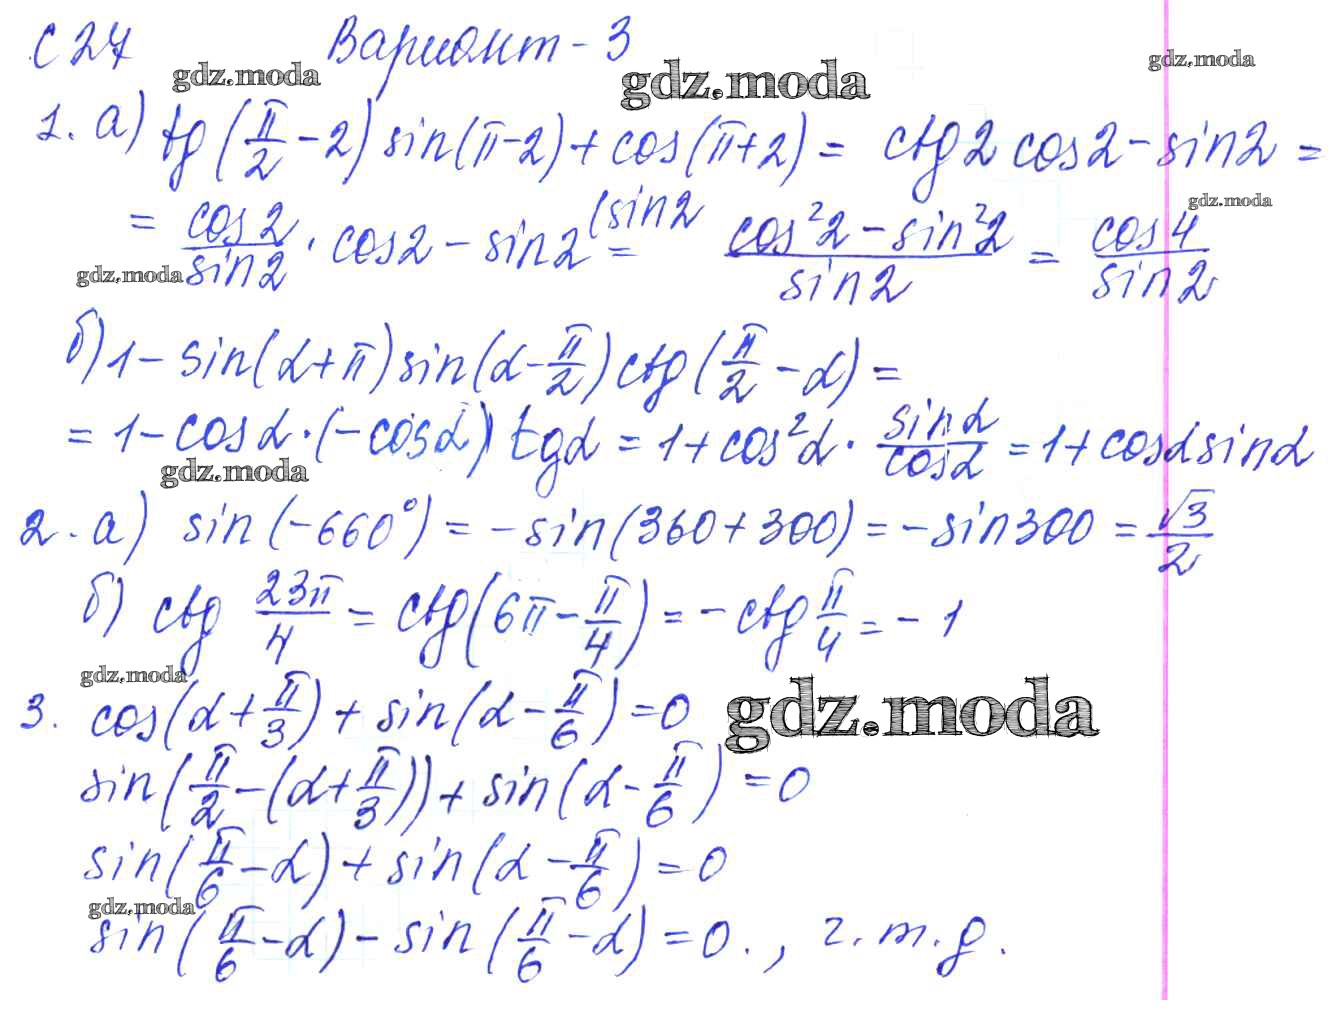 С 27 Вариант - 3
gdz.moda gdz.moda gdz.moda
1. а) tg(π/2 - 2) sin(π-2) + cos(π+2) = ctg2 cos2 - sin2 =
gdz.moda
= cos2/sin2 · cos2 - sin2 (sin2 = (cos²2 - sin²2)/sin2 = cos4/sin2
gdz.moda
б) 1 - sin(α+π) sin(α - π/2) ctg(π/2 - α) =
= 1 - cosα · (-cosα) tgα = 1 + cos²α · sinα/cosα = 1 + cosα sinα
gdz.moda
2. а) sin(-660°) = - sin(360 + 300) = - sin300 = √3/2
б) ctg 23π/4 = ctg(6π - π/4) = - ctg π/4 = - 1
gdz.moda gdz.moda
3. cos(α + π/3) + sin(α - π/6) = 0
sin(π/2 - (α + π/3)) + sin(α - π/6) = 0
sin(π/6 - α) + sin(α - π/6) = 0
gdz.moda
sin(π/6 - α) - sin(π/6 - α) = 0. , г. т. д.